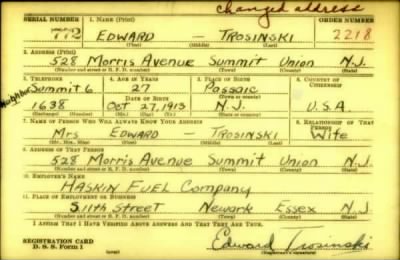 changed address
SERIAL NUMBER 1. NAME (Print) ORDER NUMBER
772 EDWARD — TROSINSKI 2218
(First) (Middle) (Last)
2. ADDRESS (Print)
528 Morris Avenue Summit Union N.J.
(Number and street or R. F. D. number) (Town) (County) (State)
3. TELEPHONE 4. AGE IN YEARS 5. PLACE OF BIRTH 6. COUNTRY OF CITIZENSHIP
Neighbor
Summit 6 27 Passaic
DATE OF BIRTH (Town or county)
1638 Oct 27, 1913 N.J. U.S.A.
(Exchange) (Number) (Mo.) (Day) (Yr.) (State or country)
7. NAME OF PERSON WHO WILL ALWAYS KNOW YOUR ADDRESS 8. RELATIONSHIP OF THAT PERSON
Mrs EDWARD — TROSINSKI Wife
(Mr., Mrs., Miss) (First) (Middle) (Last)
9. ADDRESS OF THAT PERSON
528 Morris Avenue Summit Union N.J.
(Number and street or R. F. D. number) (Town) (County) (State)
10. EMPLOYER'S NAME
HASKIN FUEL Company
11. PLACE OF EMPLOYMENT OR BUSINESS
S. 11th Street Newark Essex N.J.
(Number and street or R. F. D. number) (Town) (County) (State)
I AFFIRM THAT I HAVE VERIFIED ABOVE ANSWERS AND THAT THEY ARE TRUE.
REGISTRATION CARD
D. S. S. Form 1 Edward Trosinski
(Registrant's signature)